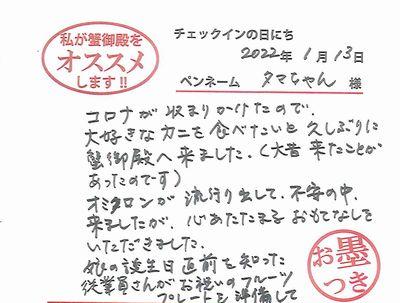 私が蟹御殿を
オススメ
します!!
チェックインの日にち
2022年 1月 13日
ペンネーム タマちゃん 様
コロナが 収まりかけたので、
大好きなカニを食べたいと 久しぶりに
蟹御殿へ来ました。(大昔 来たことが
あったのです)
オミクロンが 流行り出して、不安の中、
来ましたが、心あたたまる おもてなしを
いただきました。
娘の誕生日 直前を知った
従業員さんが お祝いのフルーツ
プレートを 準備して
お墨
つき